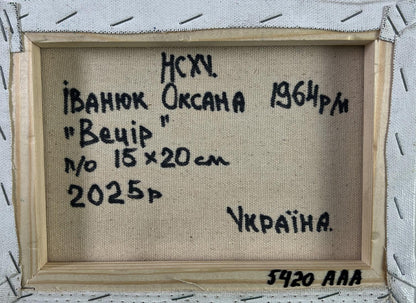 НСХУ.
Іванюк Оксана 1964р/н
"Вечір"
п/о 15×20см
2025р
Україна.
5420 ААА